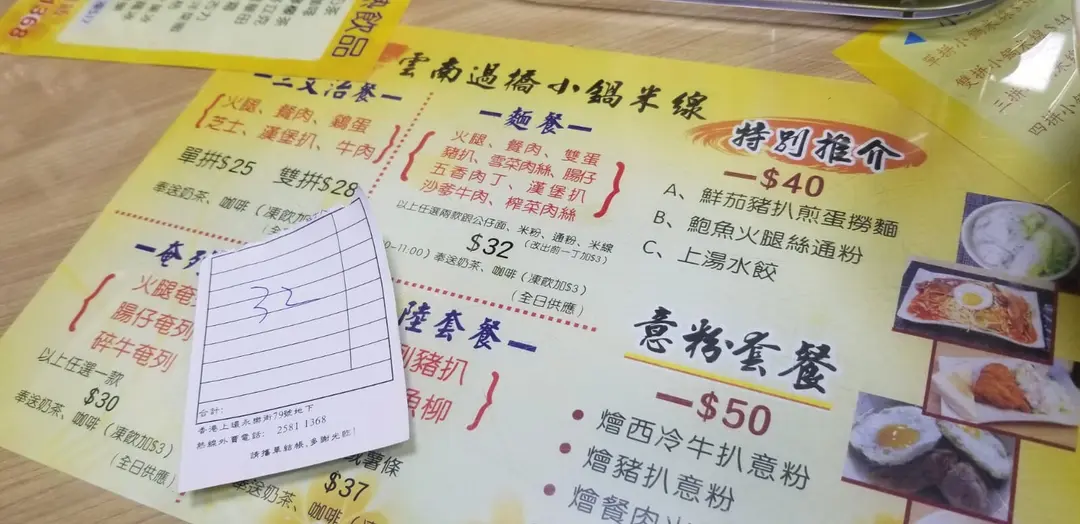 飲品
1368
雲南過橋小鍋米線
三文治餐
火腿、餐肉、雞蛋
芝士、漢堡扒、牛肉
單拼$25 雙拼$28
奉送奶茶、咖啡（凍飲加
麵餐
火腿、餐肉、雙蛋
豬扒、雪菜肉絲、腸仔
五香肉丁、漢堡扒
沙爹牛肉、榨菜肉絲
以上任選兩款跟公仔面、米粉、通粉、米線
$32（改出前一丁加$3）
0-11:00）奉送奶茶、咖啡（凍飲加$3）
（全日供應）
特別推介
$40
A、鮮茄豬扒煎蛋撈麵
B、鮑魚火腿絲通粉
C、上湯水餃
奄列
火腿奄
腸仔奄列
碎牛奄列
以上任選一款
$30
奉送奶茶、咖啡（凍飲加$3）
（全日供應）
陸套餐
豬扒
魚柳
或薯條
$37
奉送奶茶、咖啡
意粉套餐
$50
燴西冷牛扒意粉
燴豬扒意粉
燴餐肉
32
合計:
香港上環永樂街79號地下
熱線外賣電話: 2581 1368
請攜單結帳,多謝光臨!
單拼小鍋米線
雙拼小鍋米線$44
三拼
四拼小鍋米線